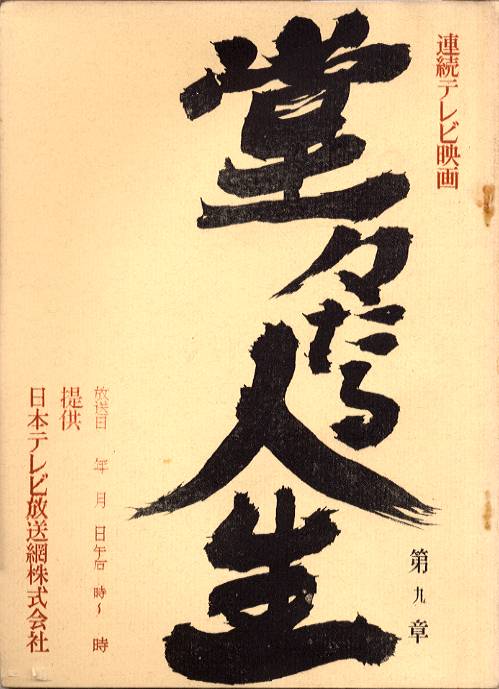 連続テレビ映画
堂々たる人生
第九章
放送日 年 月 日午后 時〜 時
提供
日本テレビ放送網株式会社